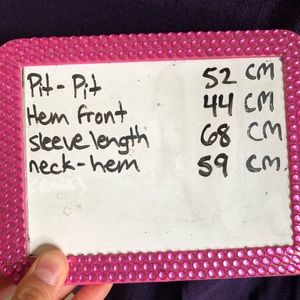 Pit - Pit 52 CM
Hem front 44 CM
sleeve length 68 CM
neck - hem 59 CM